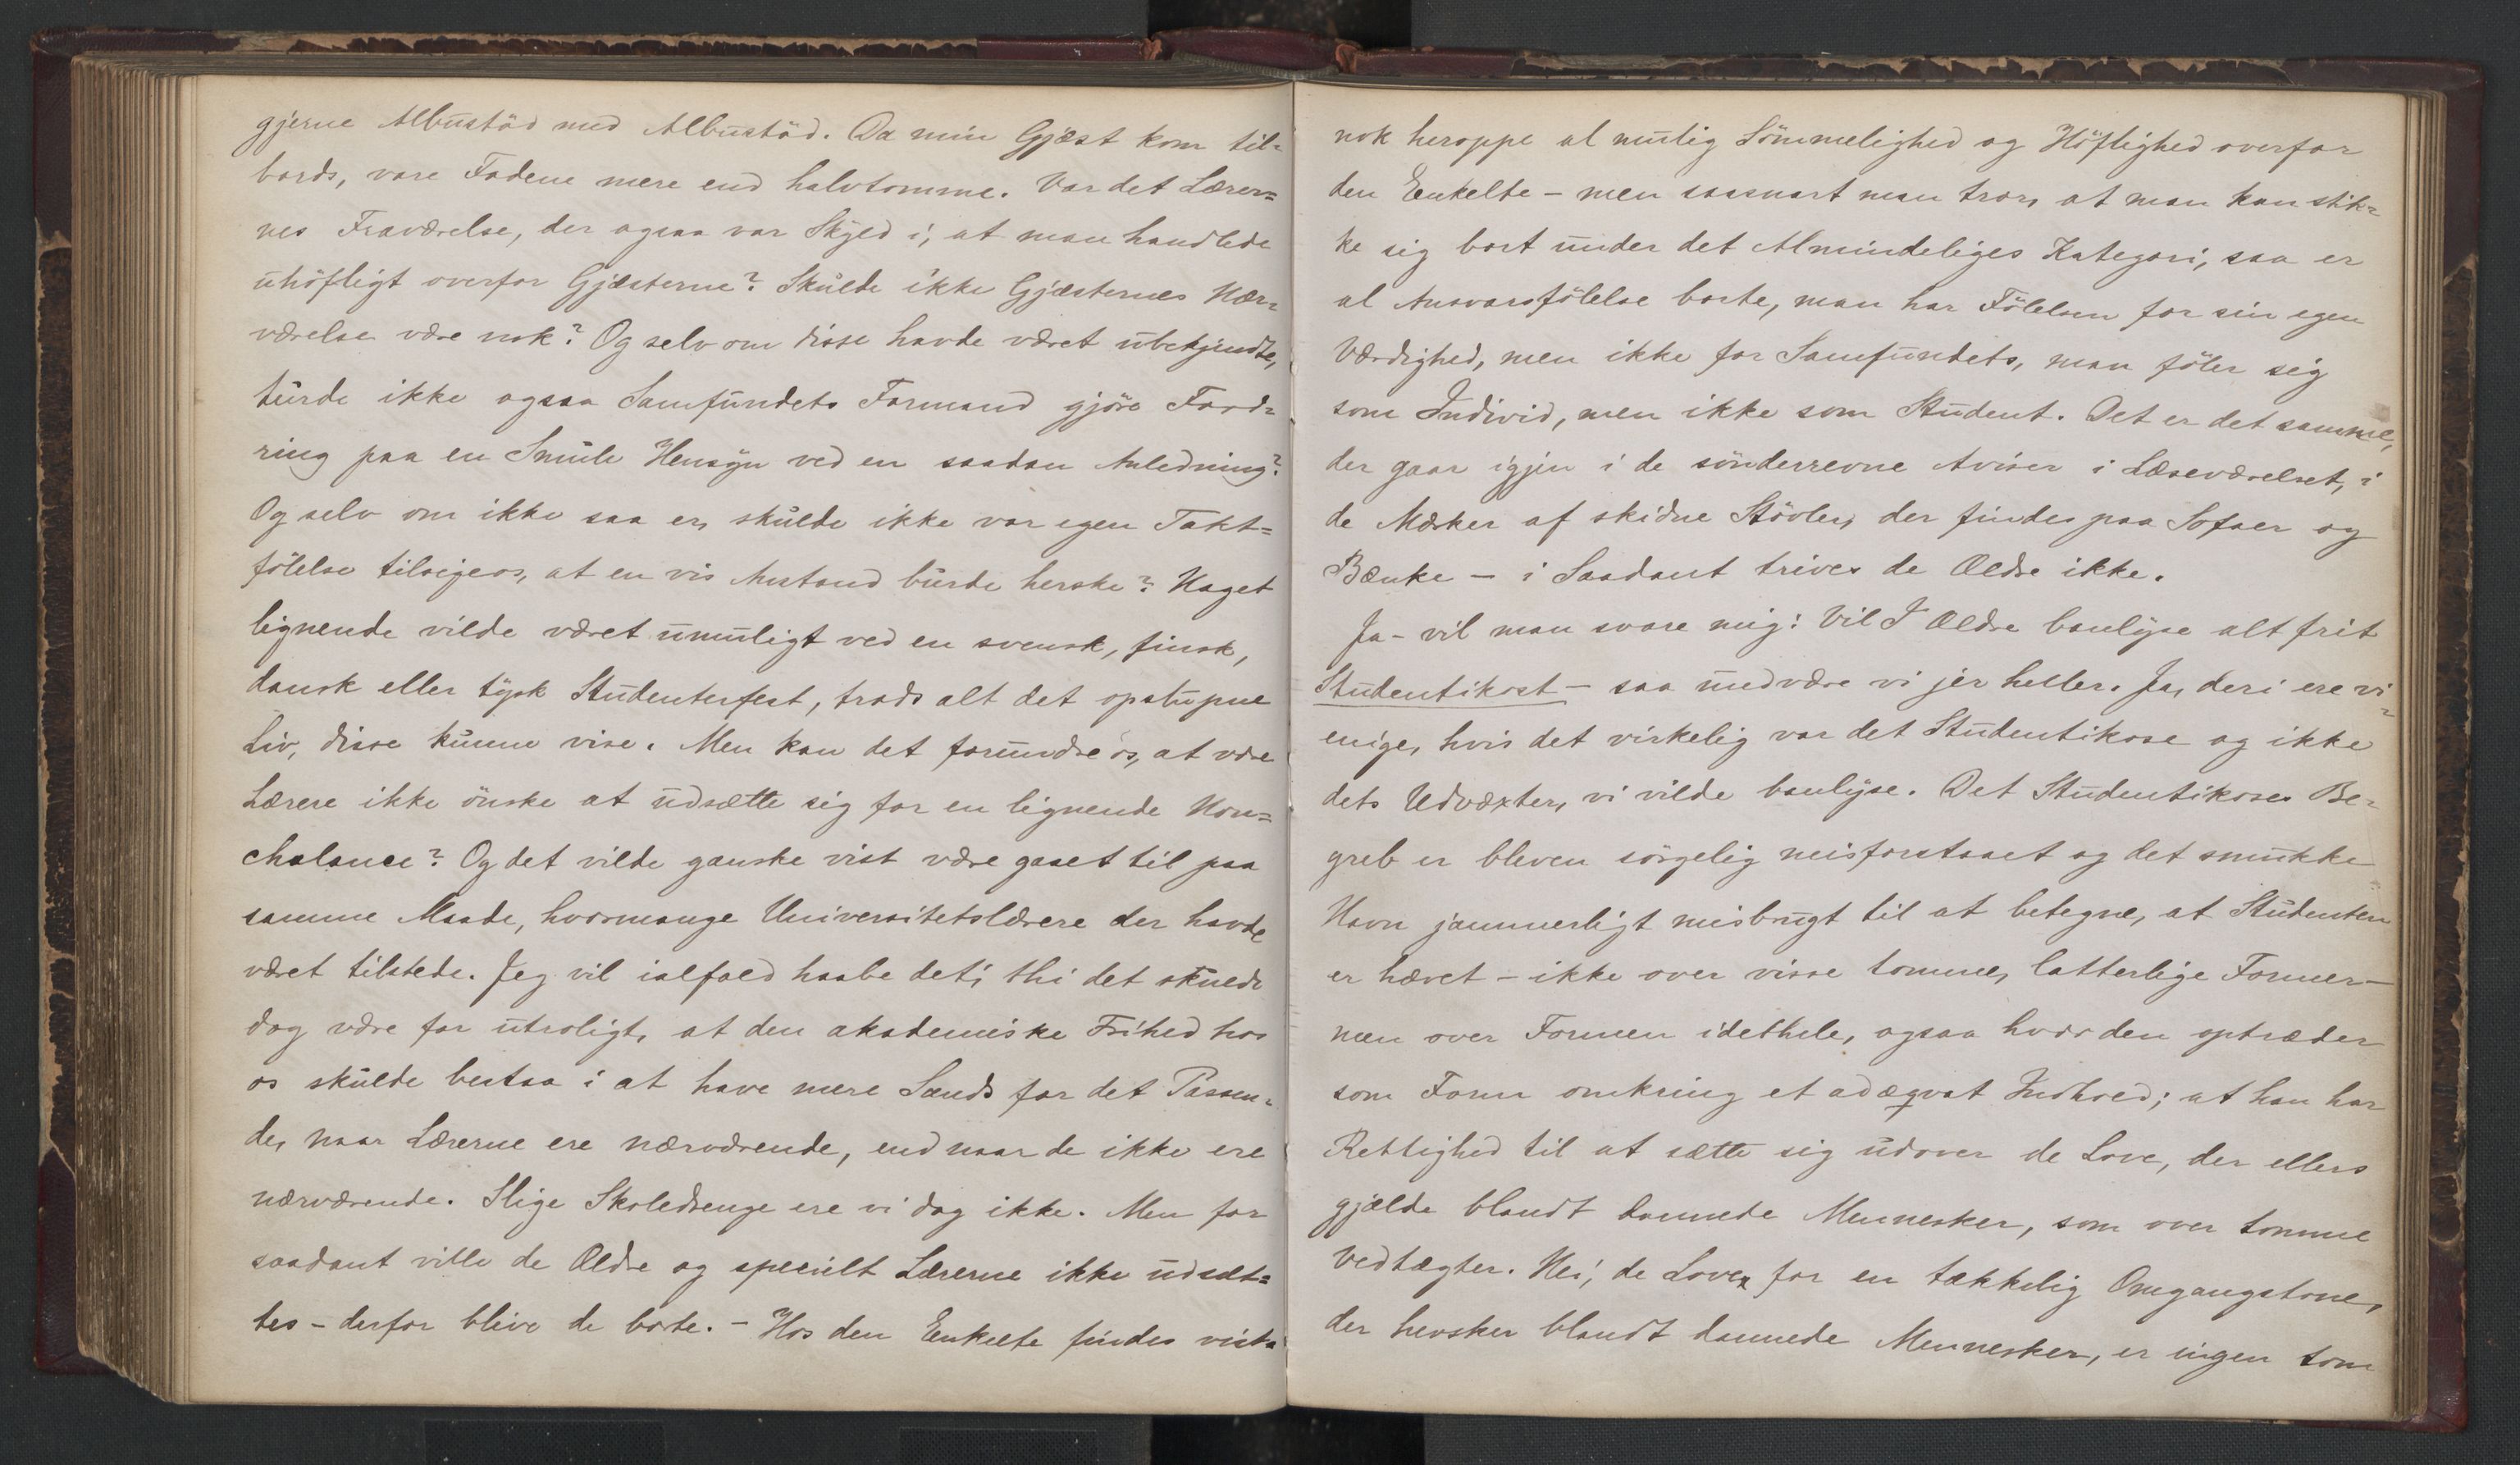 gjerne Albustöd med Albustöd. Da min Gjæst kom til-
bords, vare Fadene mere end halvtomme. Var det Lærer=
nes Fraværelse, der ogsaa var Skyld i, at man handlede
uhöfligt overfor Gjæsterne? Skulde ikke Gjæsternes Nær-
værelse være nok? Og selv om disse havde været ubekjendte,
turde ikke ogsaa Samfundets Formand gjöre Ford-
ring paa en Smule Hensyn ved en saadan Anledning?
Og selv om ikke saa er, skulde ikke vor egen Takt=
fölelse tilsige os, at en vis Anstand burde herske? Noget
lignende vilde været umuligt ved en svensk, finsk,
dansk eller tysk Studenterfest, trods alt det opslupne
Liv, disse kunne vise. Men kan det forundre os, at vore
Lærere ikke önske at udsætte sig for en lignende Non=
chalance? Og det vilde ganske vist være gaaet til paa
samme Maade, hvormange Universitetslærere der havde
været tilstede. Jeg vil ialfald haabe det; thi det skulde
dog være for utroligt, at den akademiske Frihed hos
os skulde bestaa i at have mere Sands for det Passen-
de, naar Lærerne ere nærværende, end naar de ikke ere
nærværende. Slige Skoledrenge ere vi dog ikke. Men for
saadant ville de Ældre og specielt Lærerne ikke udsæt=
tes - derfor blive de borte. - Hos den Enkelte findes vist=
nok heroppe al mulig Sömmelighed og Höflighed overfor
den Enkelte - men saasnart man tror, at man kan stik-
ke sig bort under det Almindeliges Kategori, saa er
al Ansvarsfölelse borte, man har Fölelsen for sin egen
Værdighed, men ikke for Samfundets, man föler sig
som Individ, men ikke som Student. Det er det samme,
der gaar igjen i de sönderrevne Aviser i Læseværelset, i
de Mærker af skidne Stövler, der findes paa Sofaer og
Bænke - i Saadant trives de Ældre ikke.
Ja - vil man svare mig: Vil I Ældre banlyse alt frit
Studentikost - saa undvære vi jer heller. Ja, deri ere vi
enige, hvis det virkelig var det Studentikose og ikke
dets Udvæxter, vi vilde banlyse. Det Studentikoses Be-
greb er bleven sörgelig misforstaaet og det smukke
Navn jammerligt misbrugt til at betegne, at Studenten
er hævet - ikke over visse tomme, latterlige Former -
men over Formen idethele, ogsaa hvor den optræder
som Form omkring et adæqvat Indhold; at han har
Rettighed til at sætte sig udover de Love, der ellers
gjælde blandt dannede Mennesker, som over tomme
Vedtægter. Nei, de Love for en tækkelig Omgangstone,
der hersker blandt dannede Mennesker, er ingen tom